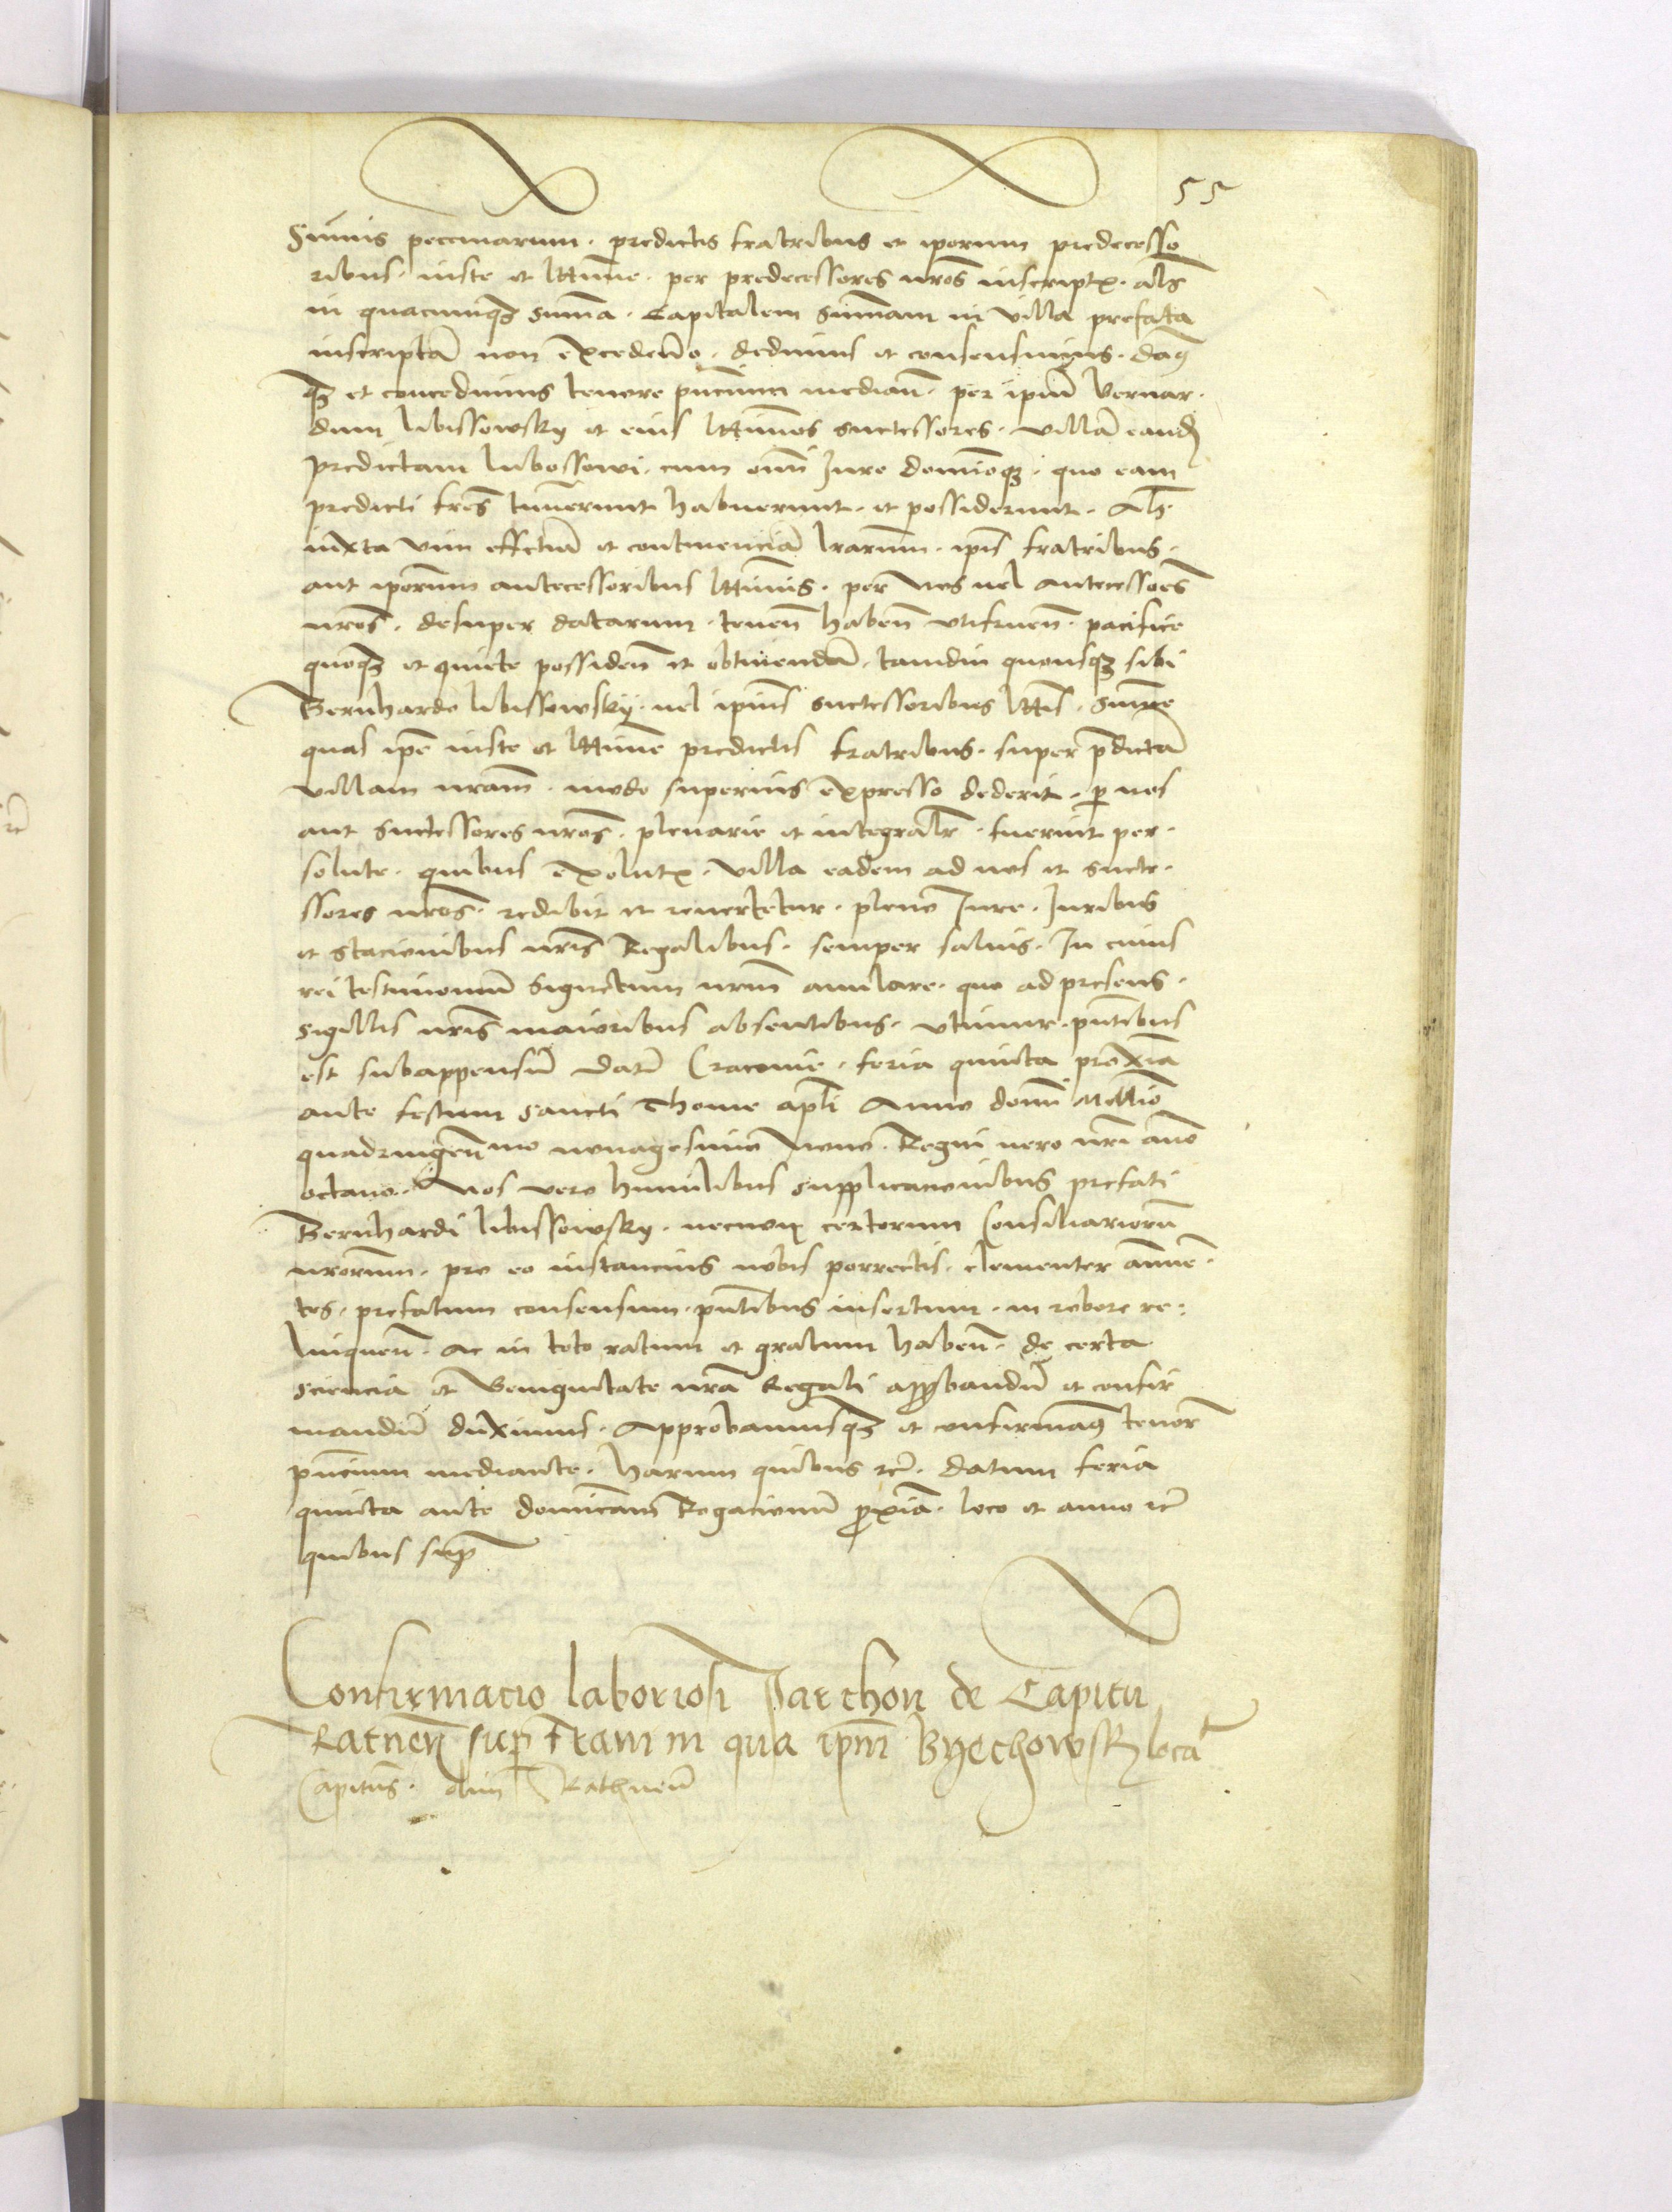 55
Sumis pecuniarum. predictis fratribus et iporum predecesso
ribus. iuste et lttime. per predecessores nros inscriptis. als
in quacumqz suma. Capitalem sumam in villa prefata
inscriptam non excedendo. dedimus et consensimus. damq
qz et concedimus tenore pntium mediante. per ipm Bernar
dum libissowsky et eius lttimos successores. villam eandem
predictam lubossowi. cum omi Iure domioqz. quo eam
predicti fres tenuerunt habuerunt. et possiderunt. Als
iuxta vim effctum et continenciam lrarum. ipis fratribus.
aut iporum antecessoribus lttimis. per nos vel antecessores
nros. desuper datarum. tenen haben utifruen. pacifice
quoqz et quiete possiden et obtinendam. tamdiu quousqz sibi
Bernhardo libissowsky. vel ipius successoribus lttis. sume
quas ipe iuste et lttime predictis fratribus. super pdictam
villam nram. modo superius expresso dederit. per nos
aut successores nros. plenarie et integralr. fuerint per
solute. quibus exolutis. villa eadem ad nos et succe
ssores nros. redibit et revertetur. pleno Iure. Iuribus
et stacionibus nris Regalibus. semper salvis. In cuius
rei testimonium Signetum nrm anulare. quo ad presens.
sigillis nris maioribus absentibus. utimur. pntibus
est subappensum datum Cracovie. feria quinta proxima
ante festum sancti Thome apli Anno domi Millio
quadringentmo nonagesimo Nono. Regni vero nri anno
octavo. Nos vero humilibus supplicacionibus prefati
Bernhardi libissowsky. necnon certorum Consiliariorum
nrorum. pro eo instancius nobis porrectis. clementer annue
tes. prefatum consensum. pntibus insertum. in robore re
linquen. ac in toto ratum et gratum haben. de certa
sciencia et Benignitate nra Regali approbandum et confir
mandum duximus. Approbamusqz et confirmamq tenore
pncium mediante. harum quibus etc. datum feria
quinta ante domicam Rogacionum proxia. loco et anno etc
quibus supra
Confirmacio laboriosi Jacchon de Capitu
Ratnen super tram in qua ipm Byechowsky loca
Capitus. olim Rathnen